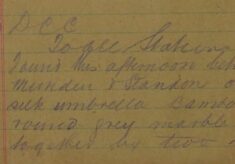 D.C.C
To all Stations
Found this afternoon
Munden & Standon a
silk umbrella Bambo
round grey marble
together by two